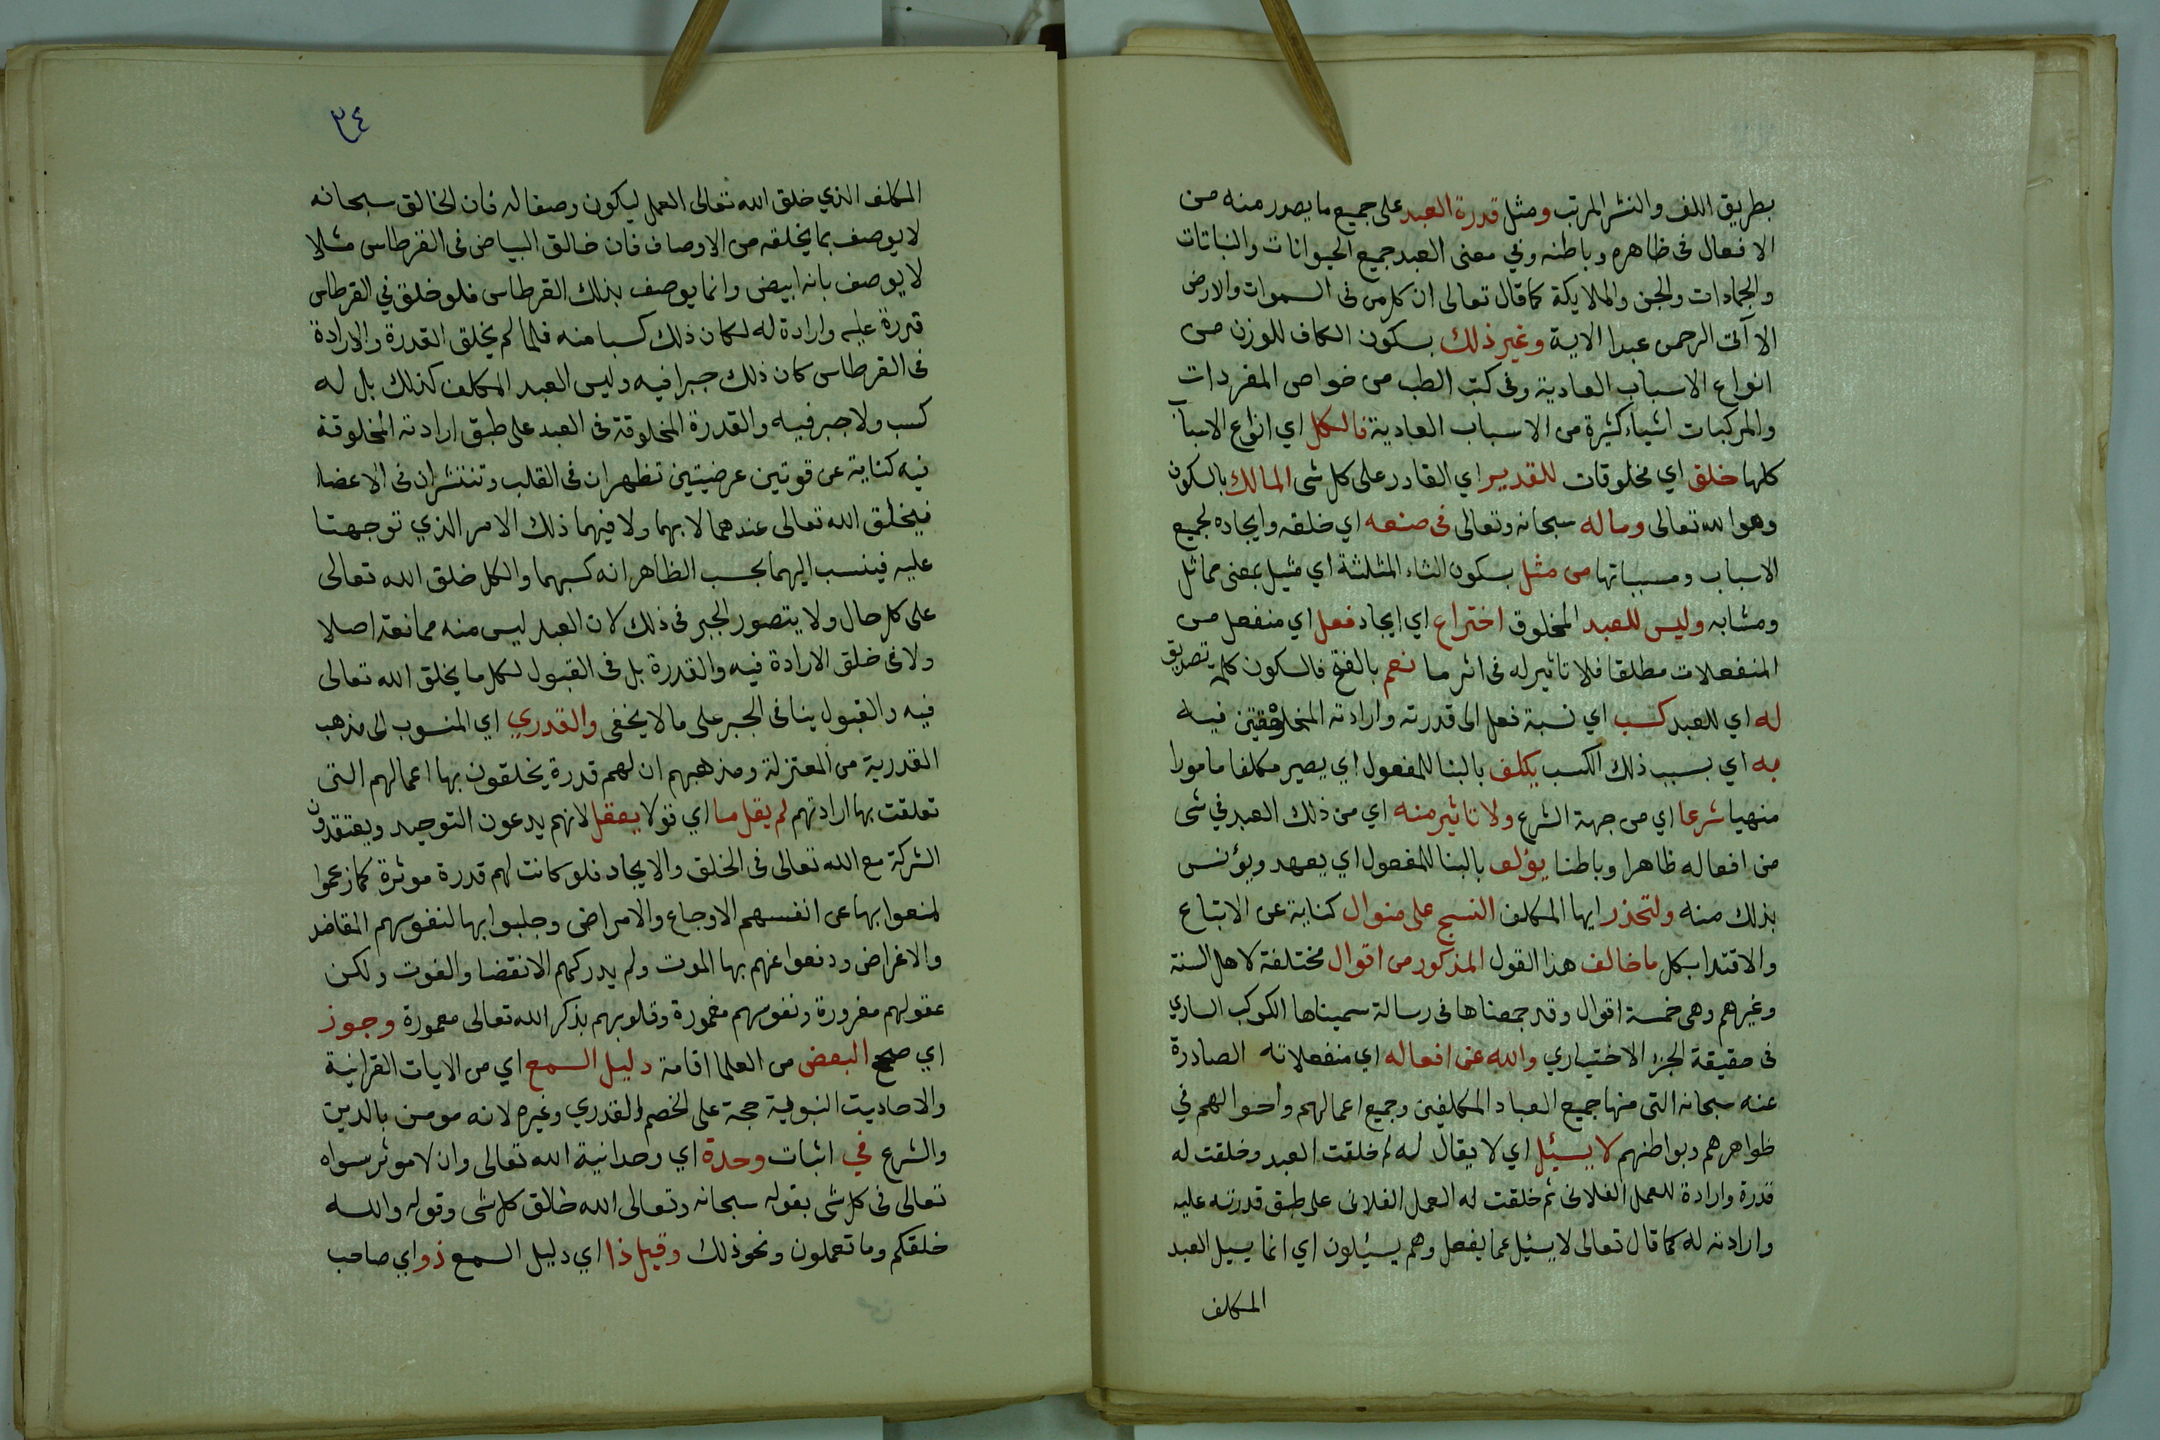 بطريق اللف والنشر المرتب ومثل قدرة العبد على جميع ما يصدر منه من
الافعال فى ظاهره وباطنه وفي معنى العبد جميع الحيوانات والنباتات
والجمادات والجن والملايكة كما قال تعالى ان كل من فى السموات والارض
الا آتى الرحمن عبدا الاية وغير ذلك بسكون الكاف للوزن من
انواع الاسباب العادية وفى كتب الطب من خواص المفردات
والمركبات اشياء كثيرة من الاسباب العادية فالكل اي انواع الاسباب
كلها خلق اي مخلوقات للقدير اي القادر على كل شى المالك بالسكون
وهو الله تعالى وماله سبحانه وتعالى فى صنعه اي خلقه وايجاده لجميع
الاسباب ومسبباتها من مثل بسكون الثاء المثلثة اي مثيل بمعنى مماثل
ومشابه وليس للعبد المخلوق اختراع اي ايجاد فعل اي منفعل من
المنفعلات مطلقا فلا تاثير له فى اثر ما نعم بالفتح فالسكون كلمة تصديق
له اي للعبد كسب اي نسبة فعل الى قدرته وارادته المخلوقتين فيه
به اي بسبب ذلك الكسب يكلف بالبنا للمفعول اي يصير مكلفا مامورا
منهيا شرعا اي من جهة الشرع ولا تاثير منه اي من ذلك العبد في شى
من افعاله ظاهرا وباطنا يؤلف بالبنا للمفعول اي يعهد ويؤنس
بذلك منه ولتحذر ايها المكلف النسج على منوال كناية عن الاتباع
والاقتدا بكل ما خالف هذا القول المذكور من اقوال مختلفة لاهل السنة
وغيرهم وهى خمسة اقوال وقد جمعناها فى رسالة سميناها الكوكب الساري
فى حقيقة الجزء الاختياري والله عن افعاله اي منفعلاته الصادرة
عنه سبحانه التى منها جميع العباد المكلفين وجميع اعمالهم واحوالهم في
ظواهرهم وبواطنهم لا يسيئل اي لا يقال له لم خلقت العبد وخلقت له
قدرة وارادة للعمل الفلانى ثم خلقت له العمل الفلانى على طبق قدرته عليه
وارادته له كما قال تعالى لا يسيئل عما يفعل وهم يسيئلون اي انما يسيل العبد
المكلف
٣٤
المكلف الذي خلق الله تعالى العمل ليكون وصفا له فان الخالق سبحانه
لا يوصف بما يخلقه من الاوصاف فان خالق البياض فى القرطاس مثلا
لا يوصف بانه ابيض وانما يوصف بذلك القرطاس فلو خلق في القرطاس
قدرة عليه وارادة له لكان ذلك كسبا منه فلما لم يخلق القدرة والارادة
فى القرطاس كان ذلك جبرا فيه وليس العبد المكلف كذلك بل له
كسب ولا جبر فيه والقدرة المخلوقة فى العبد على طبق ارادته المخلوقة
فيه كناية عن قوتين عرضيتين تظهران فى القلب وتنتشران فى الاعضا
فيخلق الله تعالى عندهما لا بهما ولا فيهما ذلك الامر الذي توجهتا
عليه فينسب اليهما بحسب الظاهر انه كسبهما والكل خلق الله تعالى
على كل حال ولا يتصور الجبر فى ذلك لان العبد ليس منه ممانعة اصلا
ولا فى خلق الارادة فيه والقدرة بل فى القبول لكل ما يخلق الله تعالى
فيه والقبول ينافى الجبر على ما لا يخفى والقدري اي المنسوب الى مذهب
القدرية من المعتزلة ومذهبهم ان لهم قدرة يخلقون بها اعمالهم التى
تعلقت بها ارادتهم لم يقل ما اي قولا يعقل لانهم يدعون التوحيد ويعتقدون
الشركة مع الله تعالى فى الخلق والايجاد فلو كانت لهم قدرة موثرة كما زعموا
لمنعوا بها عن انفسهم الاوجاع والامراض وجلبوا بها لنفوسهم المقاصد
والاغراض ودفعوا عنهم بها الموت ولم يدركهم الانقضا والفوت ولكن
عقولهم مغرورة ونفوسهم مغمورة وقلوبهم بذكر الله تعالى معمورة وجوز
اي صحح البعض من العلما اقامة دليل السمع اي من الايات القرانية
والاحاديث النبوية حجة على الخصم القدري وغيره لانه مومن بالدين
والشرع في اثبات وحدة اي وحدانية الله تعالى وان لا موثر سواه
تعالى فى كل شى بقوله سبحانه وتعالى الله خالق كل شى وقوله والله
خلقكم وما تعملون ونحو ذلك وقيل ذا اي دليل السمع ذو اي صاحب